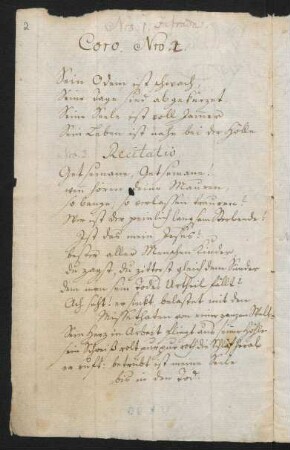 2
Nro. 1
Coro Nro 4
Sein Odem ist schwach
Seine Tage sind abgekürzet
Seine Seele ist voll Jammer
Sein Leben ist nahe bei der Hölle
Recitatio
Gethsemane, Gethsemane!
wen hören deine Mauren,
so bange, so verlassen trauren?
Wer ist der peinlich langsam Sterbende?
Ist das mein Jesus?
bester aller Menschen Kinder
du zagst, du zitterst gleich dem Sünder
dem man sein Todes Urtheil fällt?
Ach seht! er sinkt belastet mit den
Missethaten von einer ganzen Welt
Sein Herz in Arbeit fliegt aus seiner Höhle
sein Schweiß rollt purpur roth die Schläf herab
er ruft: betrübt ist meine Seele
bis in den Tod.